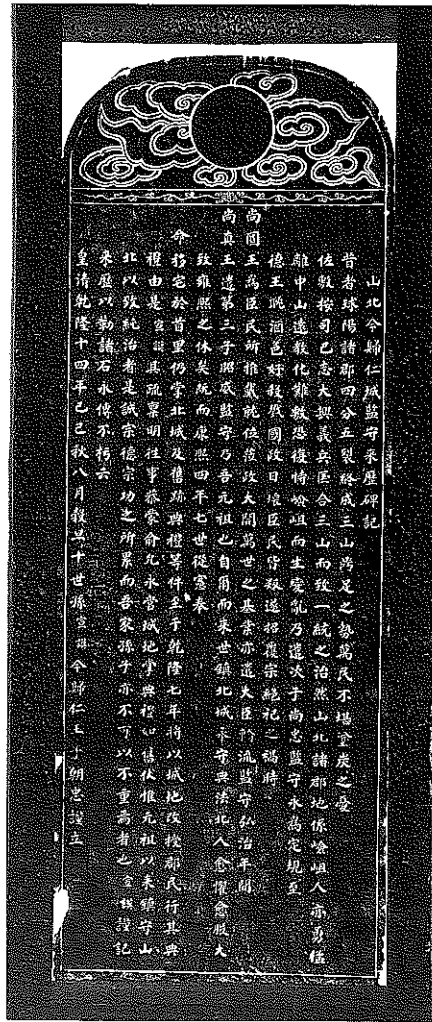 山北今歸仁城監守来歷碑記
昔者球陽諸郡四分五裂終成三山鼎足之勢萬民不堪塗炭之憂
佐敷按司巴志大興義兵匡合三山而致一統之治然山北諸郡地係嶮岨人亦勇猛
離中山遠教化難敷恐復恃嶮岨而生變亂乃遣次子尚忠監守永為定規至
德王眈酒色好殺戮國政日壞臣民背叛遂招覆宗絶祀之禍時
尚圓王為臣民所推戴就位政大開萬世之基業亦遣大臣輪流監守弘治年間
尚真王遣第三子昭威監守乃吾元祖也自爾而来世鎮北城永守典法北人愈懼愈服大
致雍熙之休矣然而康熙四年七世從憲奉
命移宅於首里仍掌北城及舊跡典禮等件至于乾隆七年將以城地改授郡民行其典
禮由是宣謨具流畧明往事恭蒙俞允永管城地掌典禮如舊伏惟元祖以来鎮守山
北以致純治者是誠宗德宗功之所累而吾家孫子亦不可以不重焉者也宣謨謹記
来歷以勒諸石永傳不朽云
皇清乾隆十四年己巳秋八月穀旦十世孫宣謨今歸仁王子朝忠謹立